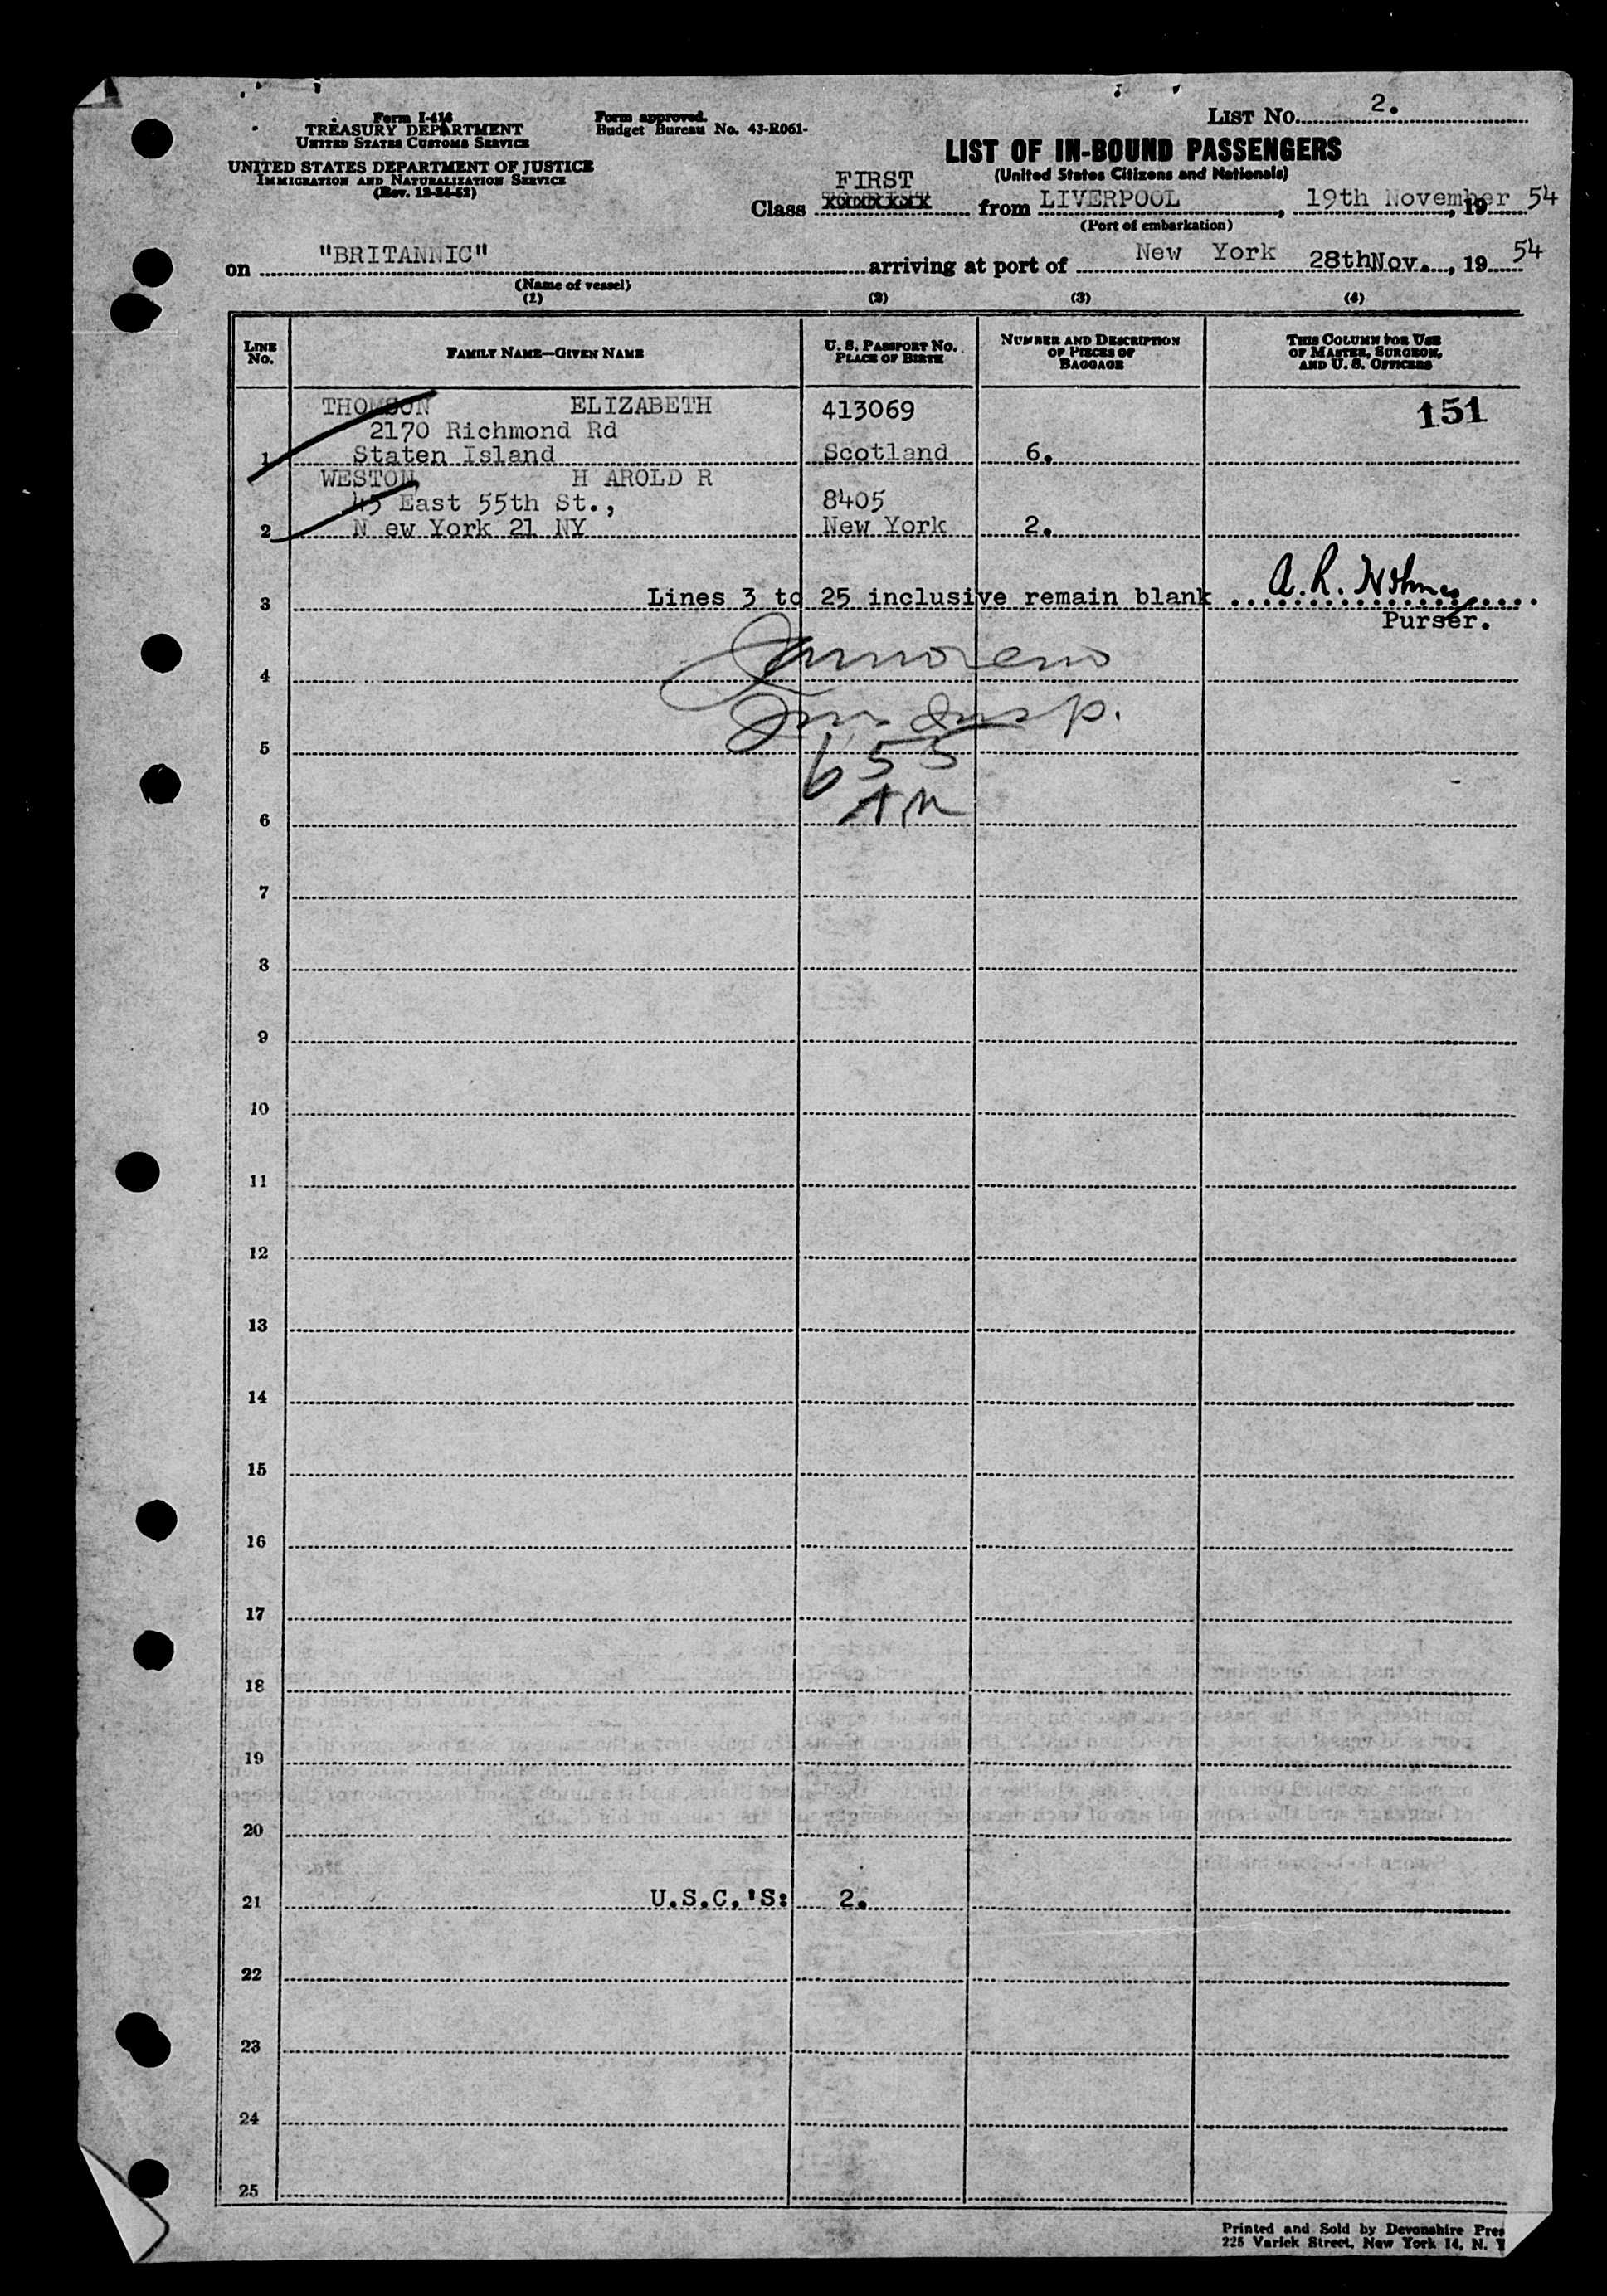 LIST No. 2.
Form I-416
TREASURY DEPARTMENT
UNITED STATES CUSTOMS SERVICE
UNITED STATES DEPARTMENT OF JUSTICE
IMMIGRATION AND NATURALIZATION SERVICE
(Rev. 12-24-52)
Form approved.
Budget Bureau No. 43-R061-
LIST OF IN-BOUND PASSENGERS
(United States Citizens and Nationals)
Class FIRST from LIVERPOOL, 19th November, 19 54
(Port of embarkation)
on "BRITANNIC" arriving at port of New York 28thNov., 19 54
(Name of vessel)
(1) (2) (3) (4)
LINE No. FAMILY NAME—GIVEN NAME U. S. PASSPORT No. PLACE OF BIRTH NUMBER AND DESCRIPTION OF PIECES OF BAGGAGE THIS COLUMN FOR USE OF MASTER, SURGEON, AND U. S. OFFICERS
THOMSON ELIZABETH 413069 151
2170 Richmond Rd
1 Staten Island Scotland 6.
WESTON H AROLD R
45 East 55th St., 8405
2 N ew York 21 NY New York 2.
3 Lines 3 to 25 inclusive remain blank A. R. Holmes
Purser.
4
5
655
AM
6
7
8
9
10
11
12
13
14
15
16
17
18
19
20
21 U.S.C.'S: 2.
22
23
24
25
Printed and Sold by Devonshire Pres
225 Varick Street, New York 14, N. Y